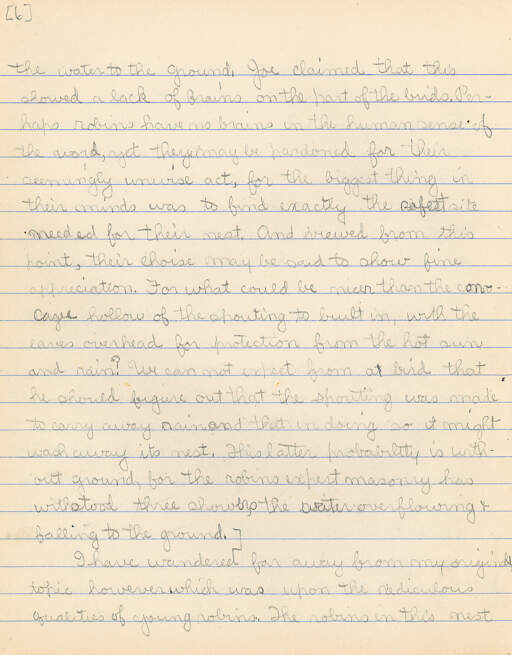 [6]
the water to the ground. Joe claimed that this
showed a lack of brains on the part of the birds. Per-
haps robins have no brains in the human sense of
the word, yet they may be pardoned for their
seemingly unwise act, for the biggest thing in
their minds was to find exactly the safest site
needed for their nest. And viewed from this
point, their choise may be said to show fine
appreciation. For what could be nicer than the con-
cave hollow of the spouting to built in, with the
eaves overhead for protection from the hot sun
and rain? We can not expect from a bird that
he should figure out that the spouting was made
to carry away rain and that in doing so it might
wash away its nest. This latter probability is with-
out ground, for the robins expert masonry has
withstood three showers the water overflowing &
falling to the ground.]
I have wandered far away from my original
topic however which was upon the rediculous
qualities of young robins. The robins in this nest